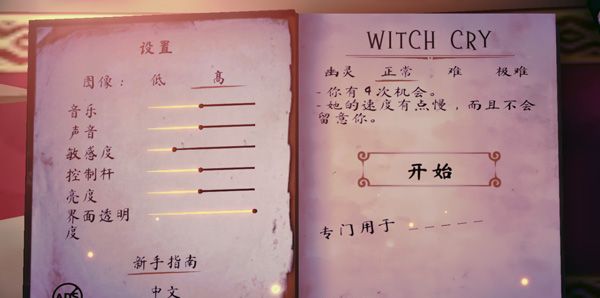 设置
图像： 低 高
音乐
声音
敏感度
控制杆
亮度
界面透明
度
新手指南
中文
ADS
WITCH CRY
幽灵 正常 难 极难
-你有4次机会。
-她的速度有点慢，而且不会
留意你。
开始
专门用于 _ _ _ _ _